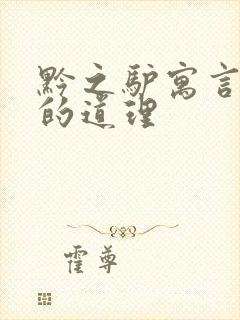 黔之驴寓言
的道理
霍尊